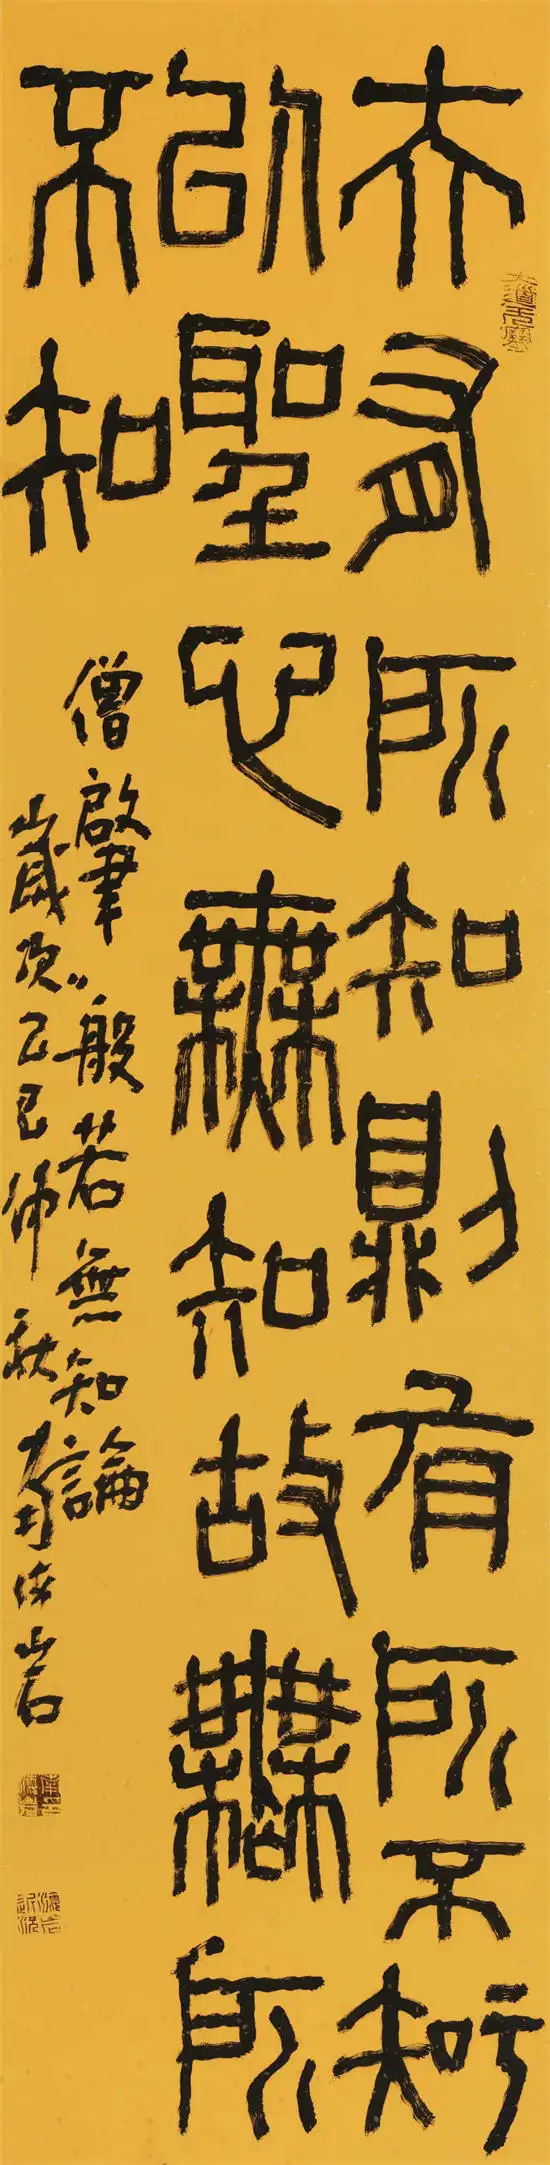 夫有所知則有所不知
以聖心無知故無所
不知
僧肇般若無知論
歲次乙巳仲秋岩